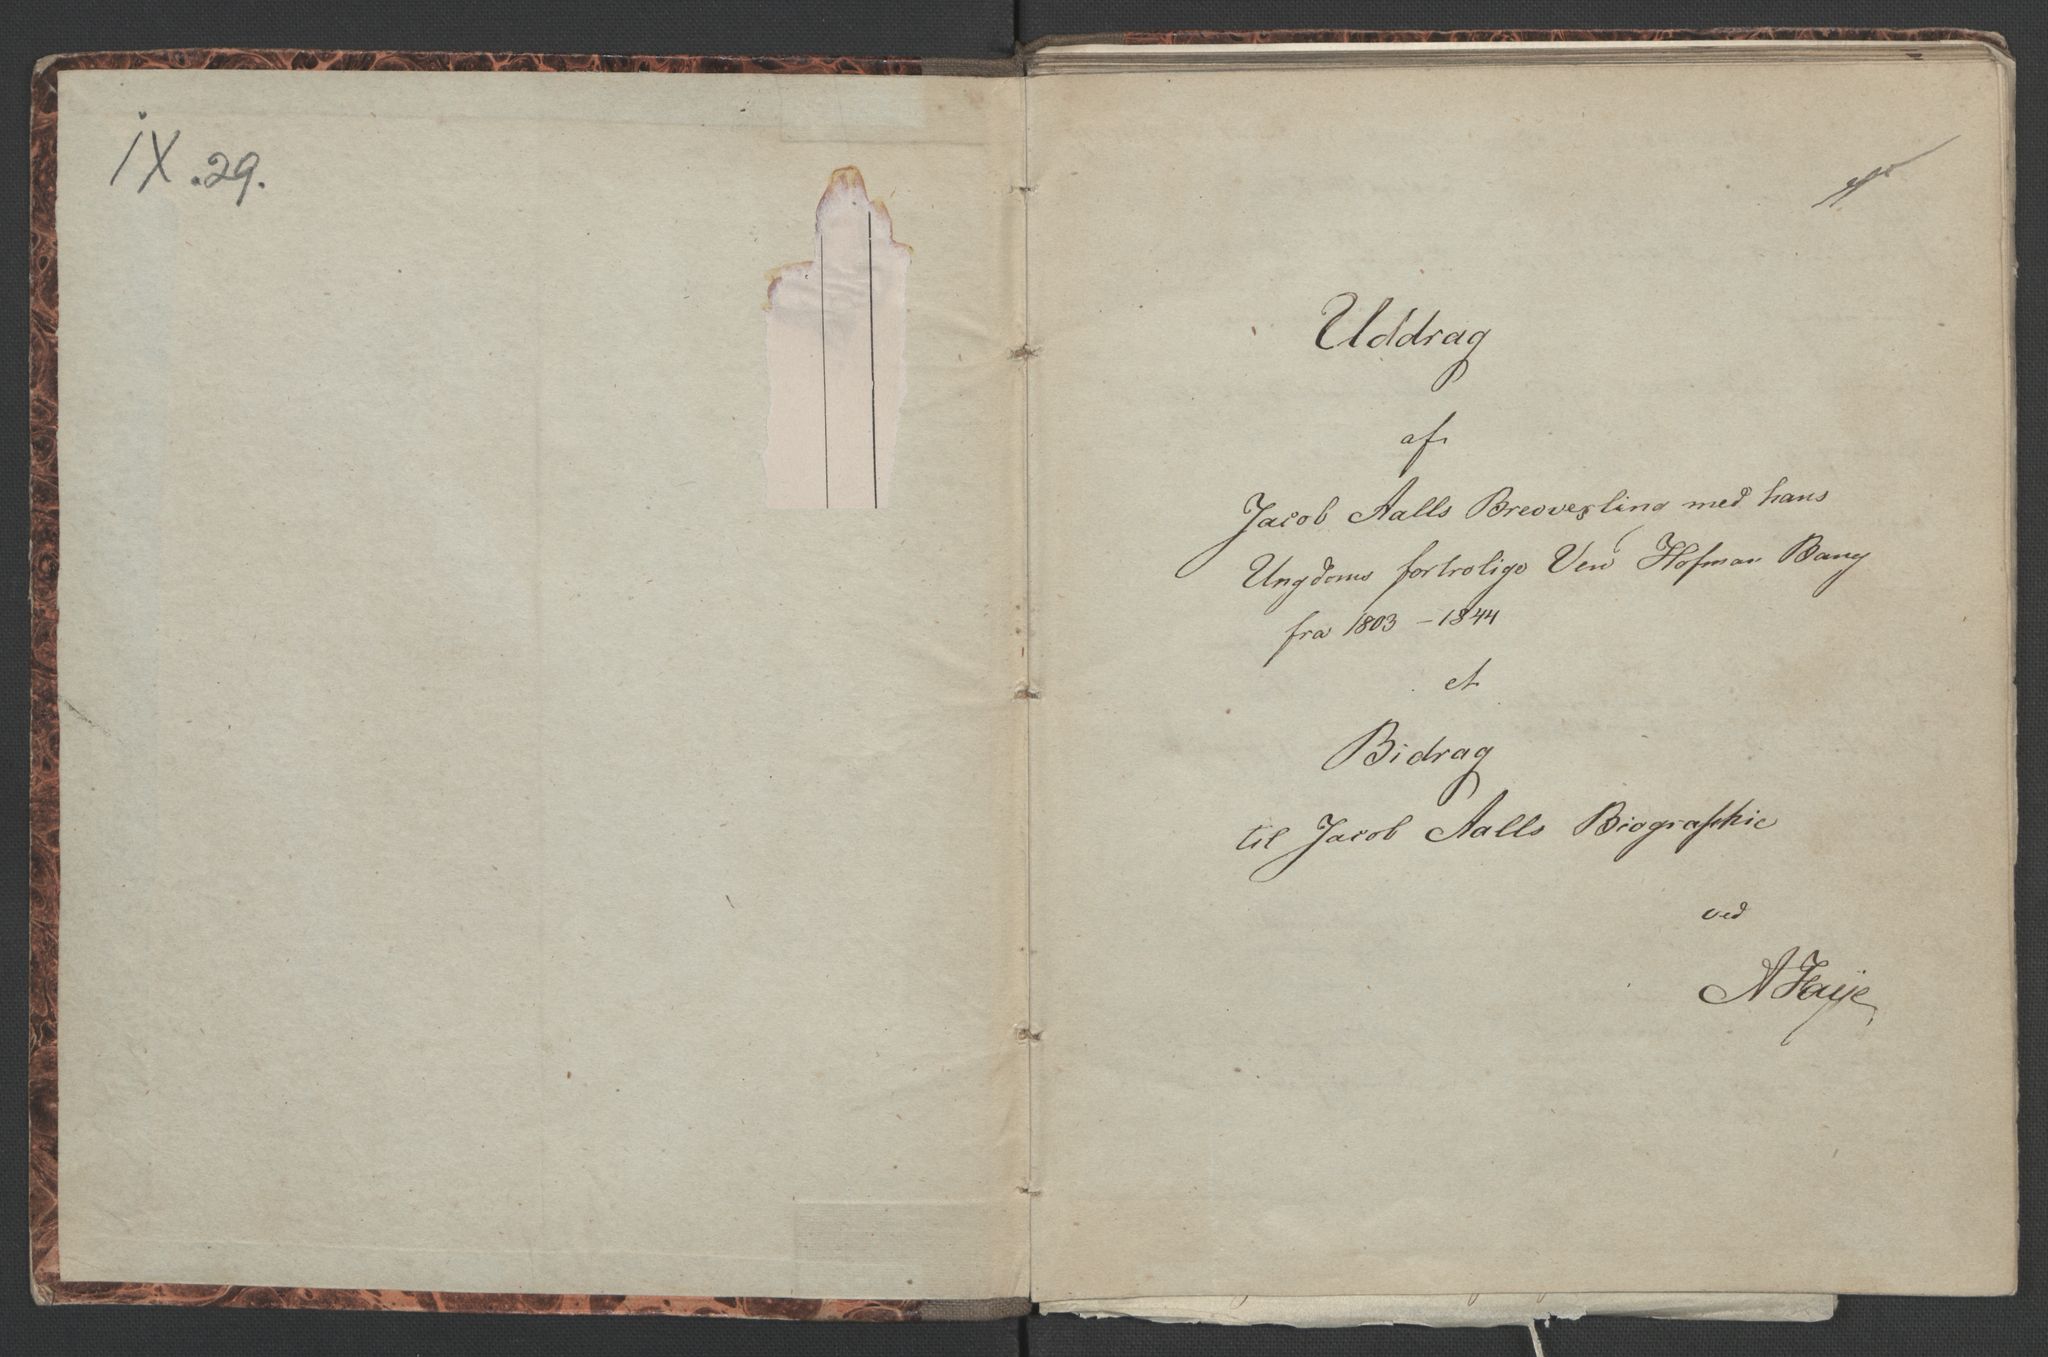 IX.29.
Uddrag
af
Jacob Aalls Brevvexling med hans
Ungdoms fortrolige Ven Hofman Bang
fra 1803 - 1844
et
Bidrag
til Jacob Aalls Biographie
ved
A Faye